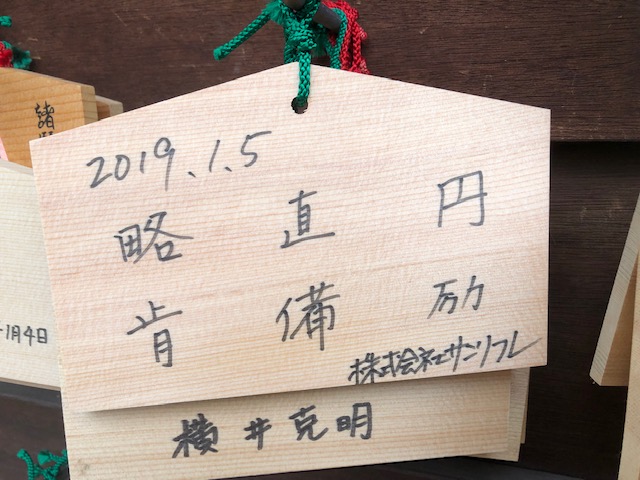 2019.1.5
略 直 円
肯 備 励
株式会社サンリフレ
横井克明
1月4日
諸